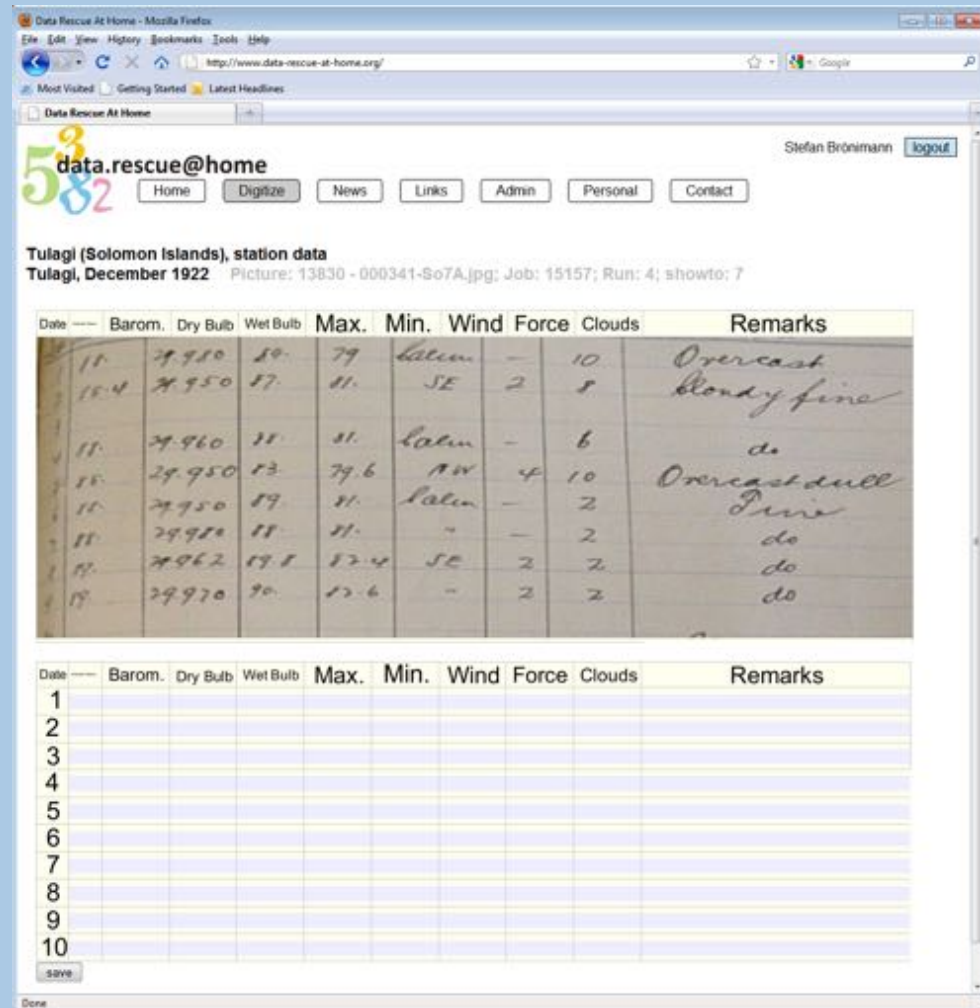 Data Rescue At Home - Mozilla Firefox
File Edit View History Bookmarks Tools Help
http://www.data-rescue-at-home.org/
Google
Most Visited Getting Started Latest Headlines
Data Rescue At Home
Stefan Brönimann logout
5382
data.rescue@home
Home Digitize News Links Admin Personal Contact
Tulagi (Solomon Islands), station data
Tulagi, December 1922 Picture: 13830 - 000341-So7A.jpg; Job: 15157; Run: 4; showto: 7
Date ---- Barom. Dry Bulb Wet Bulb Max. Min. Wind Force Clouds Remarks
29.980 79 Calm – 10 Overcast
29.950 87. 81. SE 2 8 Cloudy fine
29.960 88. 81. Calm – 6 do
29.950 83 79.6 NW 4 10 Overcast dull
29.950 89. 81. Calm – 2 Fine
29.980 88 81. " – 2 do
29.962 89.8 82.4 SE 2 2 do
29.970 90. 82.6 " 2 2 do
Date ---- Barom. Dry Bulb Wet Bulb Max. Min. Wind Force Clouds Remarks
1
2
3
4
5
6
7
8
9
10
save
Done